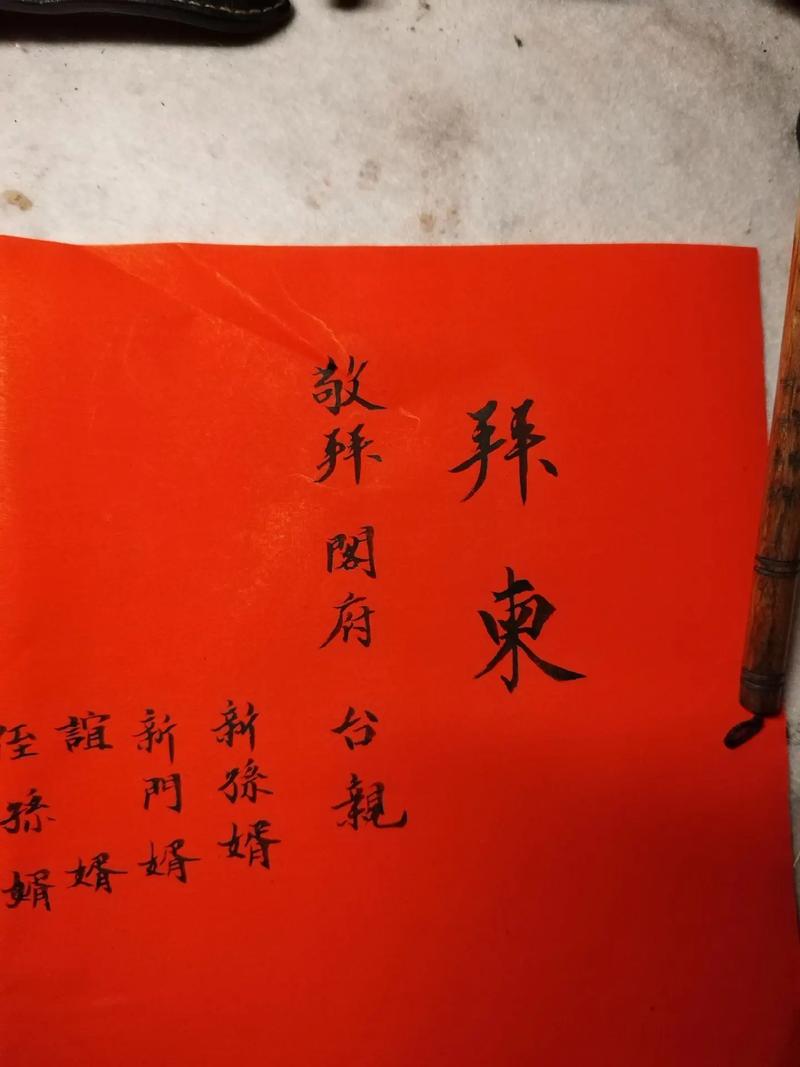 拜柬
敬拜 閣府 台親
新孫婿
新門婿
誼婿
侄孫婿